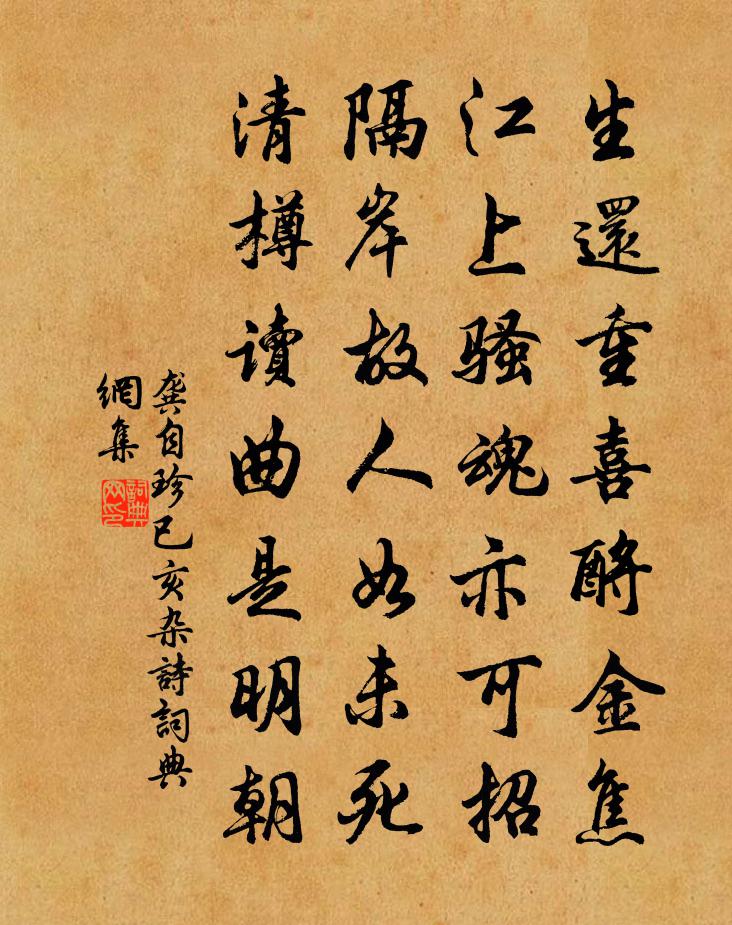 生還重喜酹金焦
江上騷魂亦可招
隔岸故人如未死
清樽讀曲是明朝
龔自珍己亥杂詩詞典
網集
詞典
網印